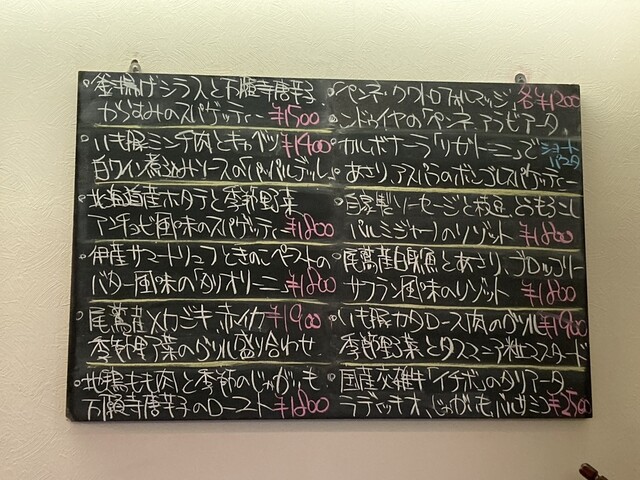 釜揚げシラスと万願寺唐辛子
からすみのスパゲッティー ¥1500
いも豚ミンチ肉とキャベツ ¥1400
白ワイン煮込みソースの「パッパルデッレ」
北海道産ホタテと季節野菜
アンチョビ風味のスパゲッティー ¥1800
伊産サマートリュフときのこペーストの
バター風味の「タリオリーニ」 ¥1800
尾鷲産メカジキ、赤イカ ¥1900
季節野菜のグリル盛り合わせ
地鶏もも肉と季節のじゃがいも
万願寺唐辛子のロースト ¥1800
ペンネ・クワトロフォルマッジ 各¥1200
ンドゥイヤの「ペンネ」アラビアータ
カルボナーラ「リガトーニ」で ショートパスタ
あさり、アスパラのボンゴレスパゲティー
自家製ソーセージと枝豆、とうもろこし
パルミジャーノのリゾット ¥1800
尾鷲産白身魚とあさり、ブロッコリー
サフラン風味のリゾット ¥1800
いも豚カタロース肉のグリル ¥1900
季節野菜とタスマニア粒マスタード
国産交雑牛「イチボ」のタリアータ
ラディッキオ、じゃがいも、バルサミコ ¥2500